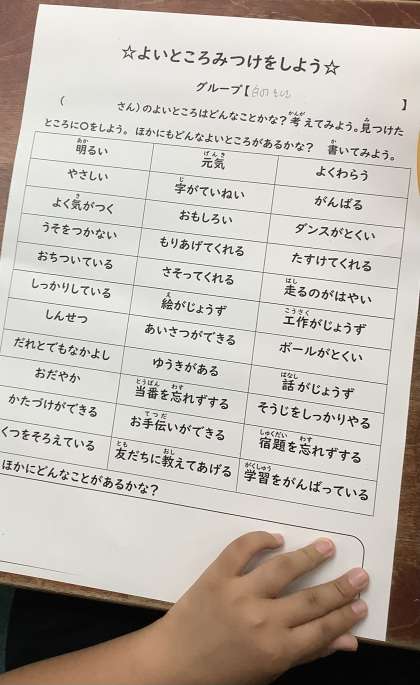 ☆よいところみつけをしよう☆
グループ【 】
( さん)のよいところはどんなことかな?考えてみよう。見つけた
ところに○をしよう。ほかにもどんなよいところがあるかな? 書いてみよう。
明るい 元気 よくわらう
やさしい 字がていねい がんばる
よく気がつく おもしろい ダンスがとくい
うそをつかない もりあげてくれる たすけてくれる
おちついている さそってくれる 走るのがはやい
しっかりしている 絵がじょうず 工作がじょうず
しんせつ あいさつができる ボールがとくい
だれとでもなかよし ゆうきがある 話がじょうず
おだやか 当番を忘れずする そうじをしっかりやる
かたづけができる お手伝いができる 宿題を忘れずする
くつをそろえている 友だちに教えてあげる 学習をがんばっている
ほかにどんなことがあるかな?